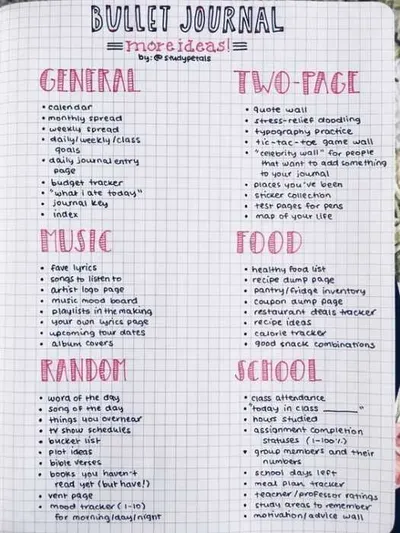 BULLET JOURNAL
more ideas!
by: @studypetals
GENERAL
• calendar
• monthly spread
• weekly spread
• daily/weekly/class
goals
• daily journal entry
page
• budget tracker
• "what i ate today"
• journal key
• index
TWO-PAGE
• quote wall
• stress-relief doodling
• typography practice
• tic-tac-toe game wall
• "celebrity wall" for people
that want to add something
to your journal
• places you've been
• sticker collection
• test pages for pens
• map of your life
MUSIC
• fave lyrics
• songs to listen to
• artist logo page
• music mood board
• playlists in the making
• your own lyrics page
• upcoming tour dates
• album covers
FOOD
• healthy food list
• recipe dump page
• pantry/fridge inventory
• coupon dump page
• restaurant deals tracker
• recipe ideas
• calorie tracker
• good snack combinations
RANDOM
• word of the day
• song of the day
• things you overhear
• tv show schedules
• bucket list
• plot ideas
• bible verses
• books you haven't
read yet (but have!)
• vent page
• mood tracker (1-10)
for morning/day/night
SCHOOL
• class attendance
• "today in class ______"
• hours studied
• assignment completion
statuses (1-100%)
• group members and their
numbers
• school days left
• meal plan tracker
• teacher/professor ratings
• study areas to remember
• motivation/advice wall